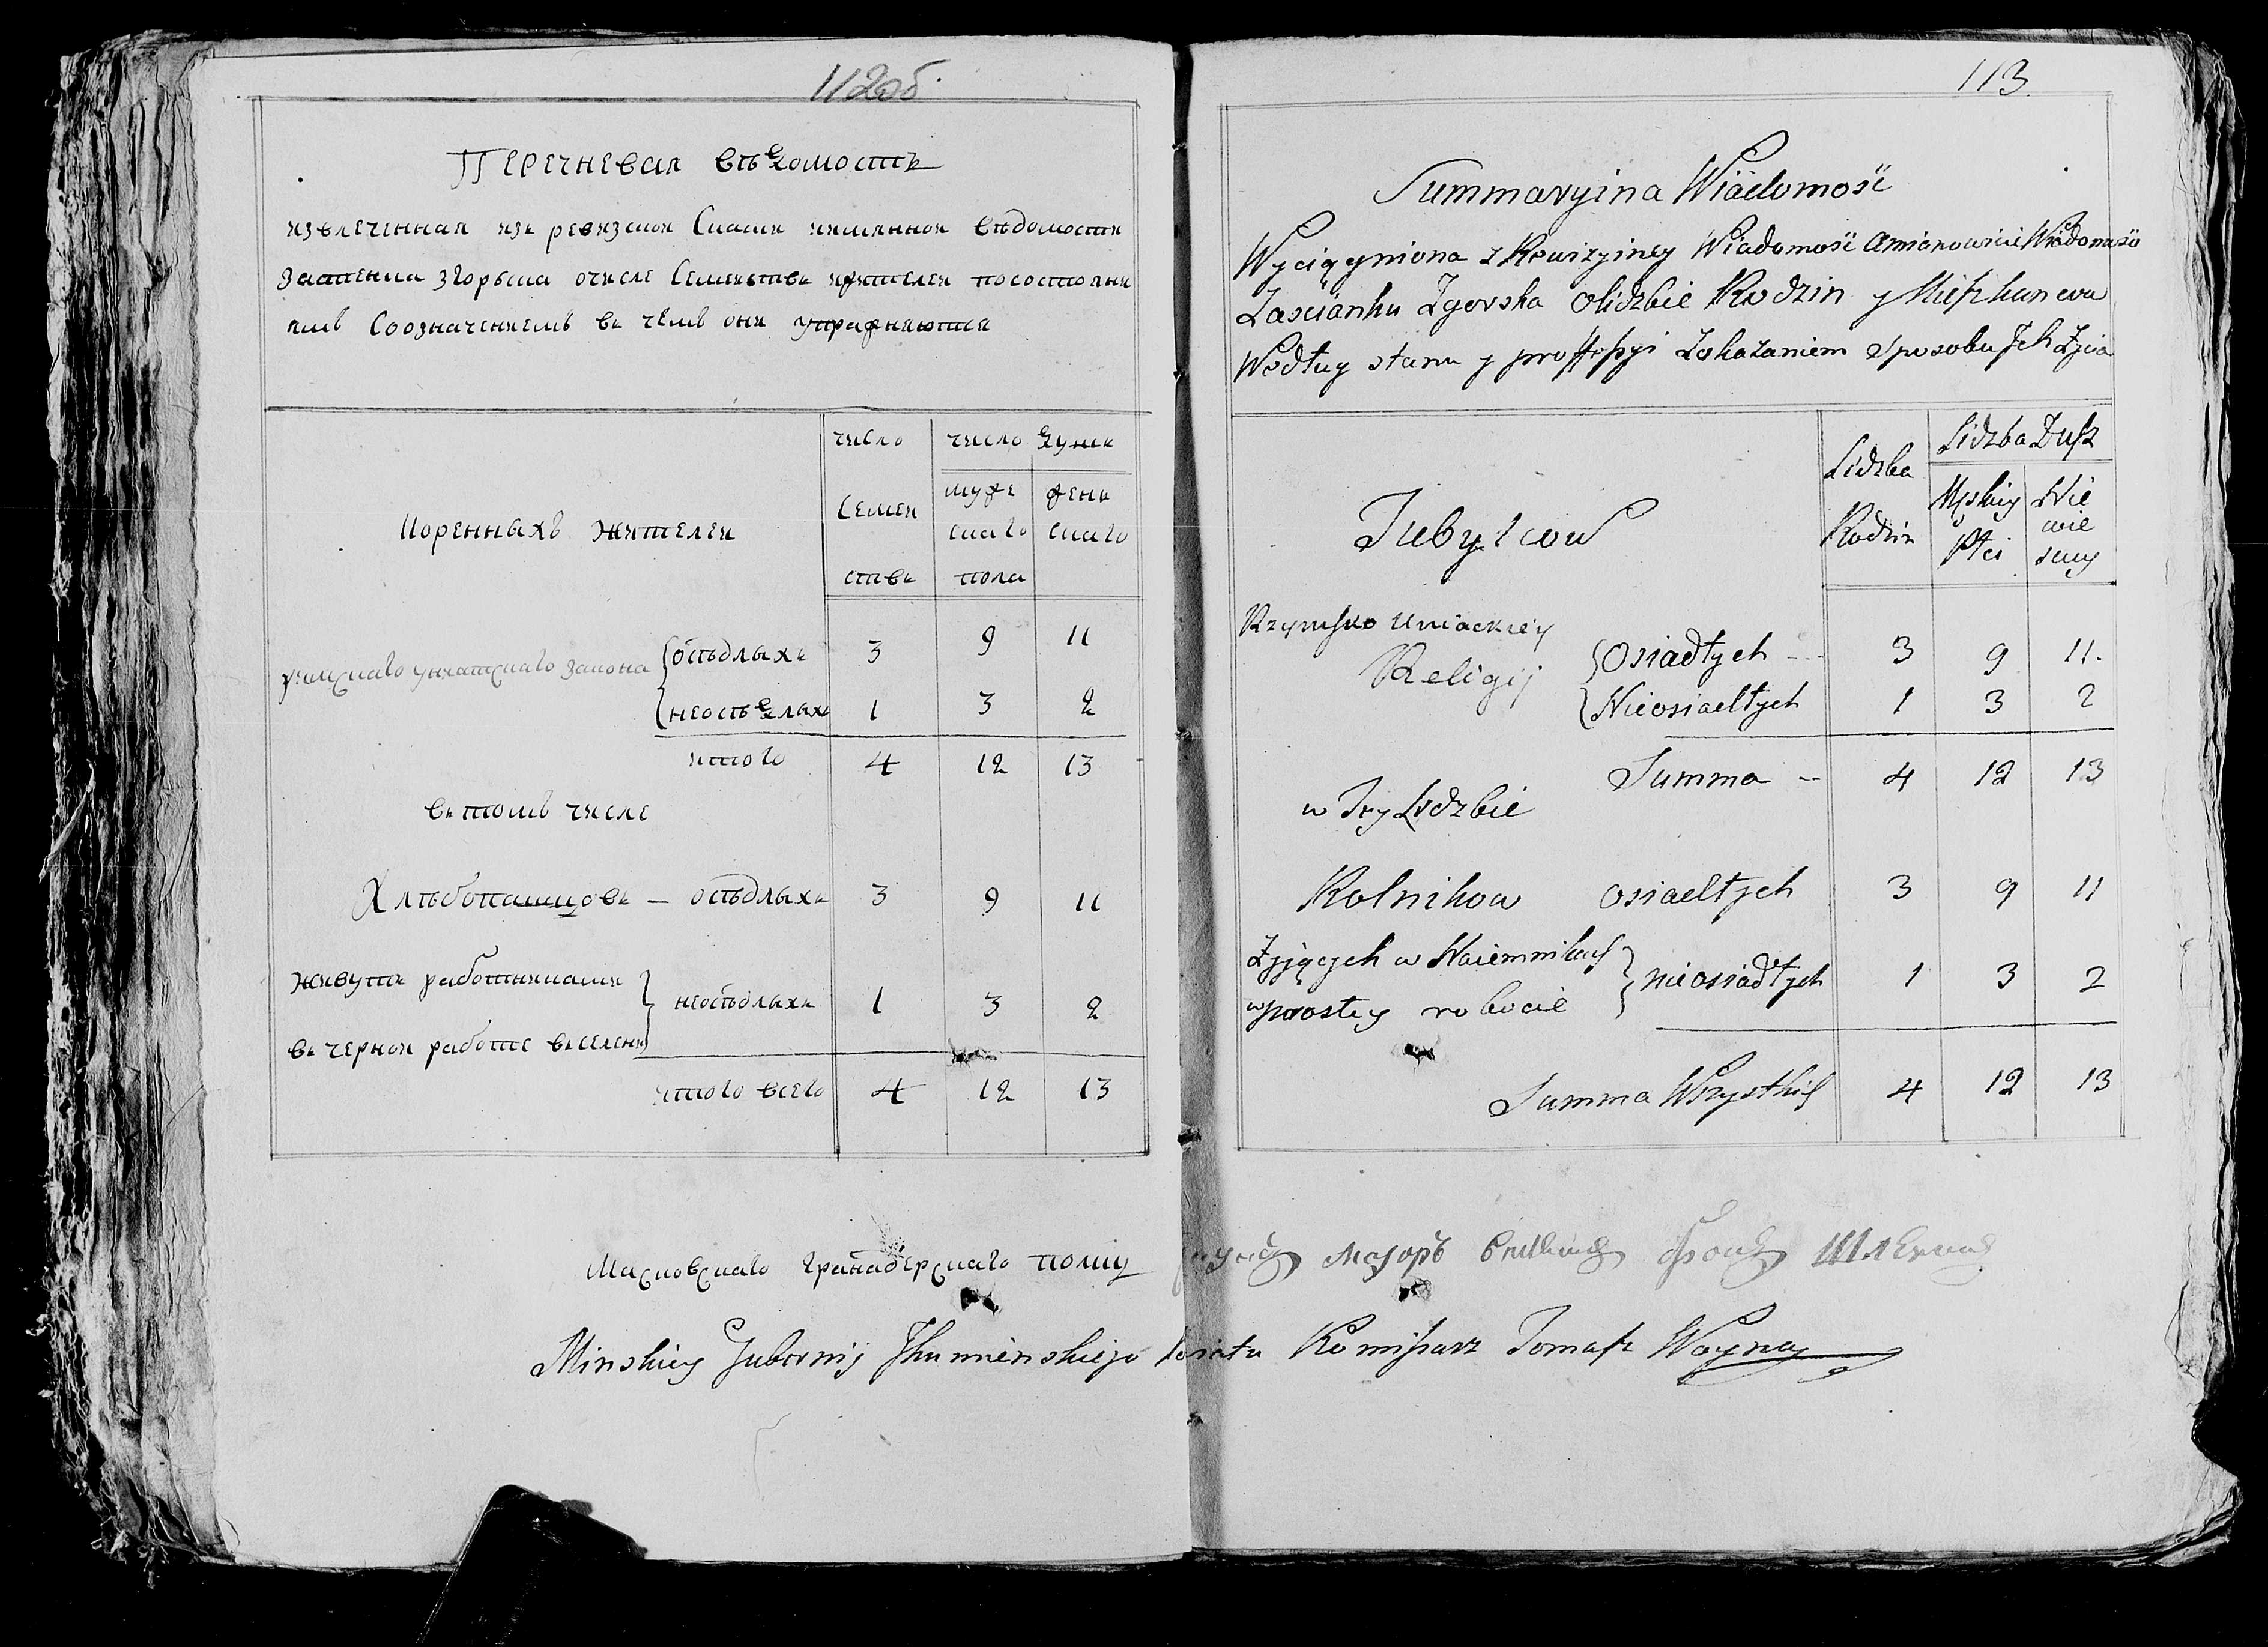 112об.
Перечневая вѣдомость
извлеченная изъ ревизкой Скаски имянной вѣдомости
застенка Згорска очисле Семействъ жителей посостояни
ямъ Соозначениемъ въ чемъ они упражняются
число
число душъ
Коренныхъ жителей
Семей
ствъ
муже
скаго
пола
жень
скаго
римскаго униатскаго закона
осѣдлыхъ 3 9 11
неосѣдлыхъ 1 3 2
итого 4 12 13
въ томъ числе
Хлѣбопашцовъ — осѣдлыхъ 3 9 11
живутъ работниками
въ черной работе
неосѣдлыхъ 1 3 2
итого всего 4 12 13
113.
Summaryina Wiadomość
Wyciągniona z Rewizyiney Wiadomośc Wiadomośc
Zascianku Zgorska olidzbie Rodzin y Mieszkancow
Według stanu y proffessyi Zokazaniem Sposobu Jch Zycia
Lidzba
Rodzin
Lidzba Dusz
Męskiey
Płci
Nie
wie
sciey
Rzymsko Uniackiey
Religij
Osiadłych -- 3 9 11.
Nieosiadłych 1 3 2
Summa -- 4 12 13
w Tey Lidzbie
Rolnikow osiadłych 3 9 11
Zyjących w Naiemnikach
w prostey robocie
nieosiadłych 1 3 2
Summa Wszystkich 4 12 13
Московскаго гранадерскаго полку маиоръ фонъ
Minskiey Gubernij Jhumienskiego Powiatu Komisarz Tomasz Woyna